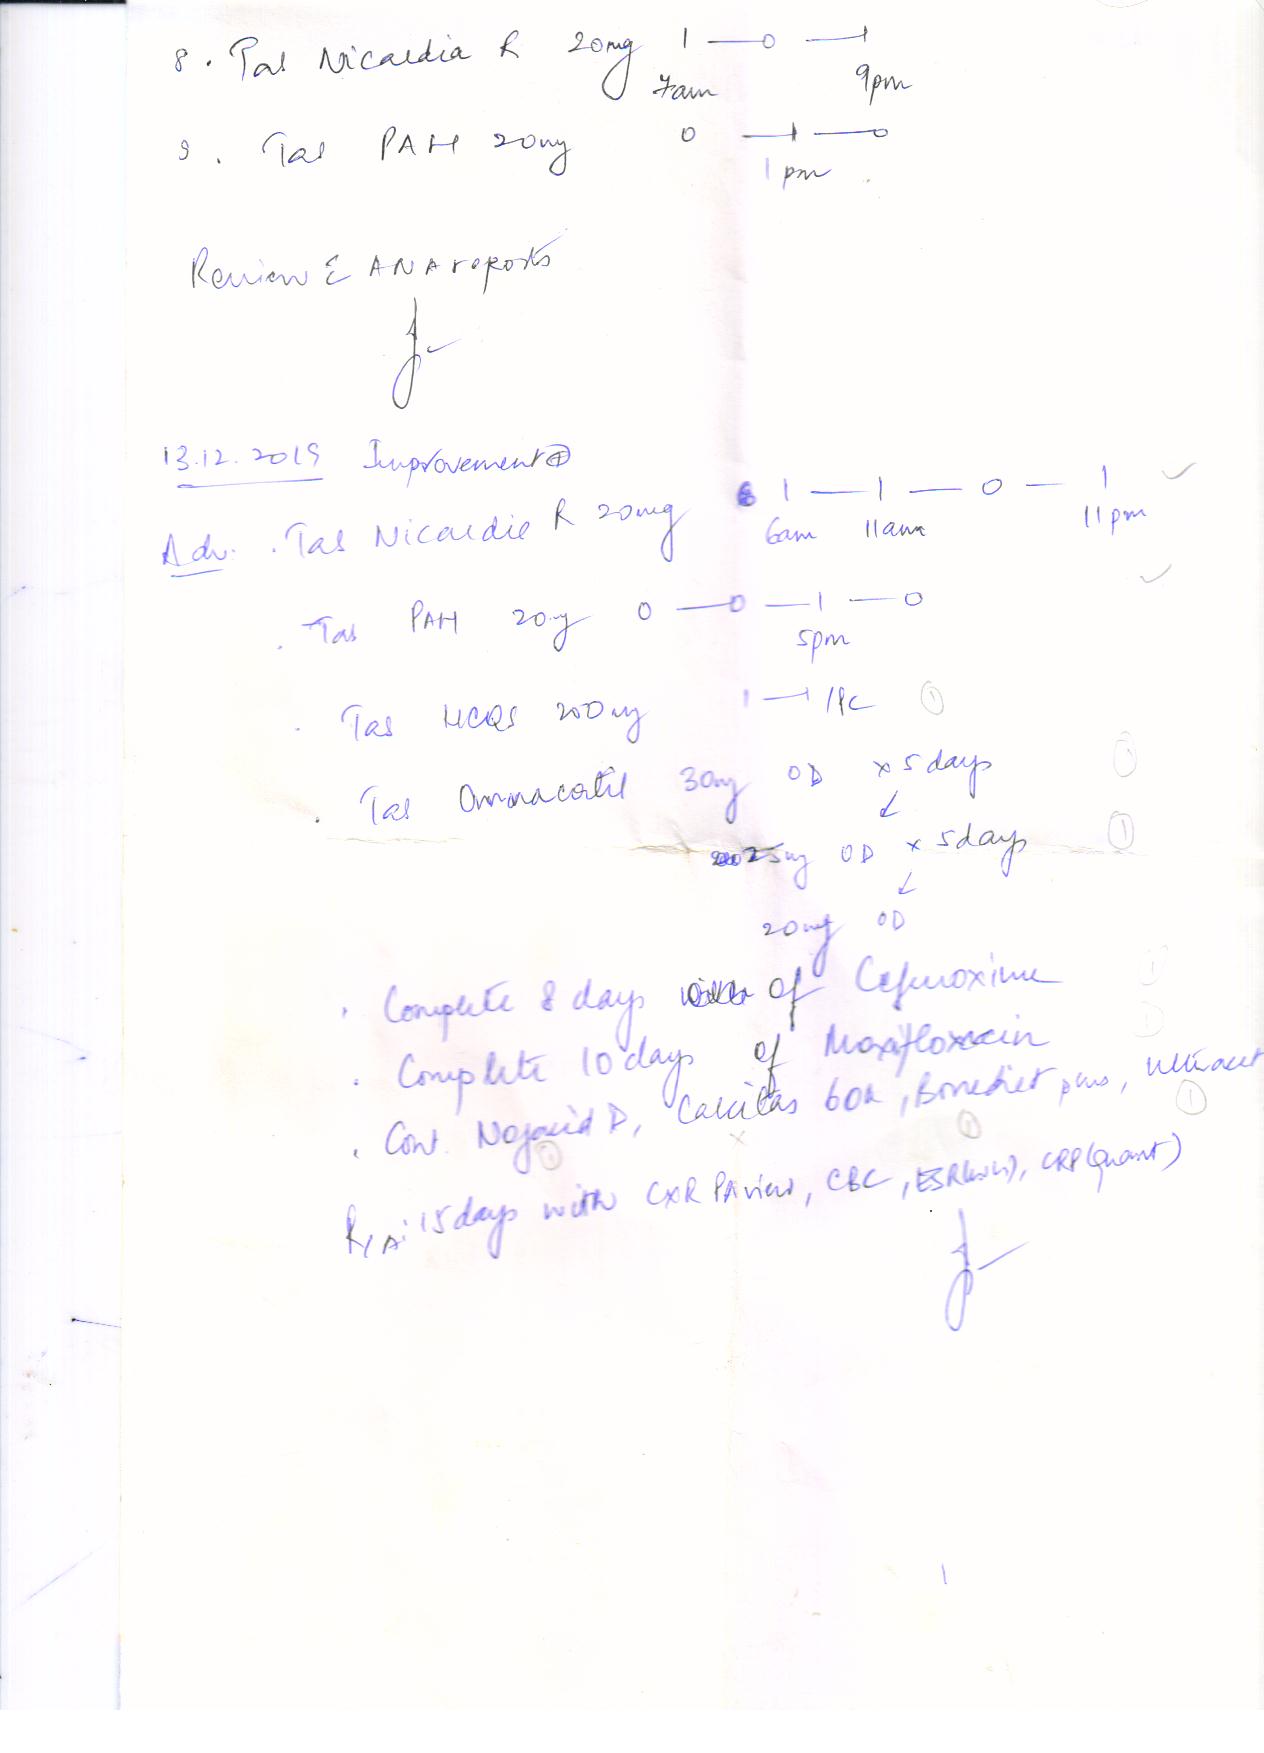 8. Tab Nicardia R 20mg 1 — 0 — 1
7am 9pm
9. Tab PAH 20mg 0 — 1 — 0
1 pm
Review c ANA reports
13.12.2019 Improvement ⊕
Adv. . Tab Nicardia R 20mg 1 — 1 — 0 — 1
6am 11am 11pm
. Tab PAH 20mg 0 — 0 — 1 — 0
5pm
. Tab HCQS 200mg 1 — 1 /PC 1
. Tab Omnacortil 30mg OD x 5 days 1
↓
25mg OD x 5 days 1
↓
20mg OD
. Complete 8 days of Cefuroxime 1
. Complete 10 days of Moxifloxacin
. Cont. D, Calcitas 60k, Bonediet plus, Ultracet
1 x 1 1
R/A: 15 days with CXR PA view, CBC, ESR, CRP (quant)